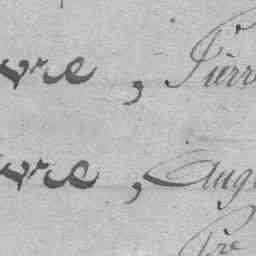 vre, Pierr
vre, Aug
Pre